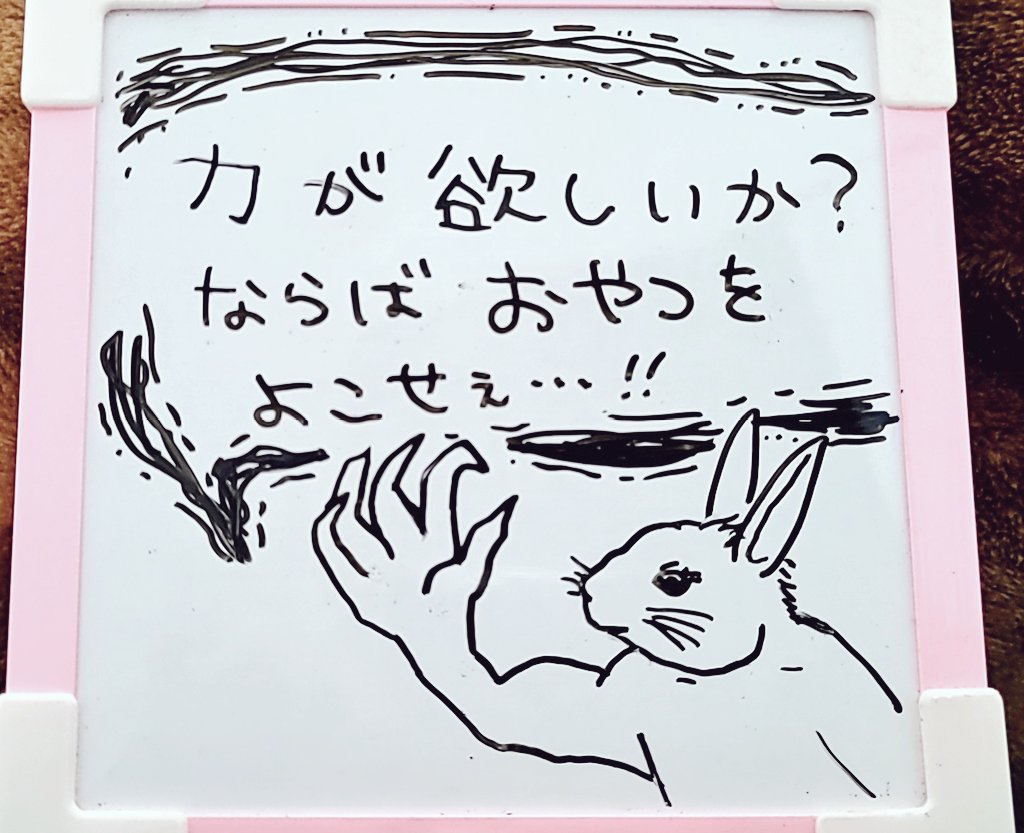 力が欲しいか?
ならばおやつを
よこせぇ…!!